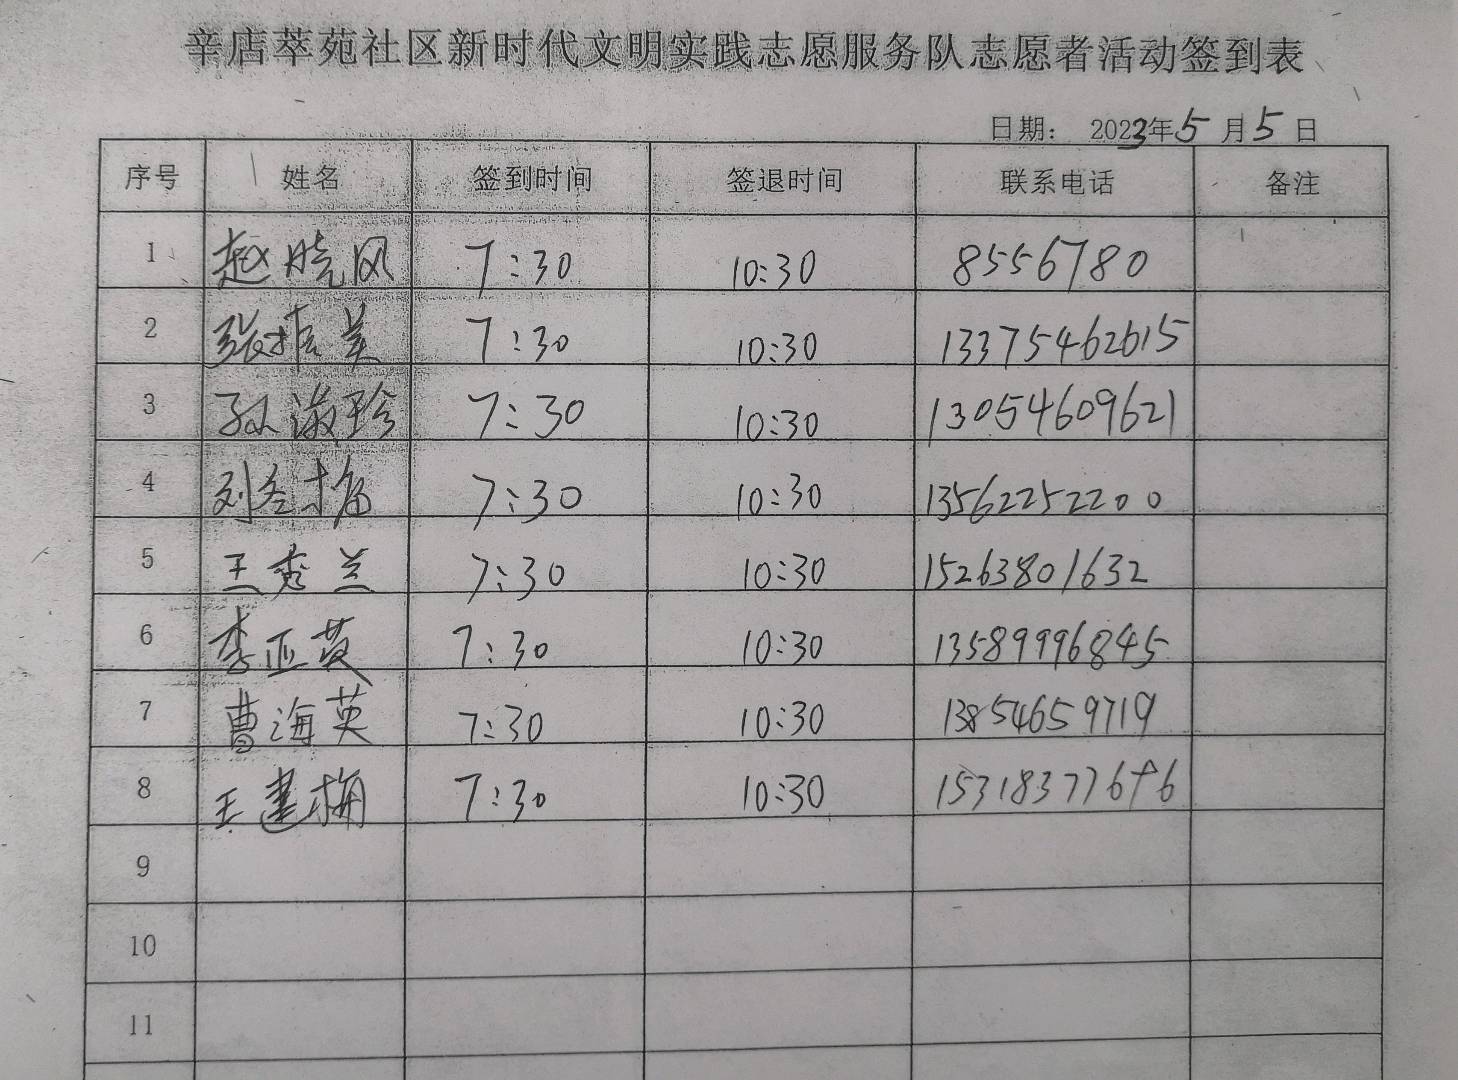 辛店萃苑社区新时代文明实践志愿服务队志愿者活动签到表
日期： 2023年5月5日
序号 姓名 签到时间 签退时间 联系电话 备注
1 赵晓风 7:30 10:30 8556780
2 张振美 7:30 10:30 13375462615
3 孙淑珍 7:30 10:30 13054609621
4 刘冬梅 7:30 10:30 13562252200
5 王秀兰 7:30 10:30 15263801632
6 李亚英 7:30 10:30 13589996845
7 曹海英 7:30 10:30 13854659719
8 王建梅 7:30 10:30
9
10
11